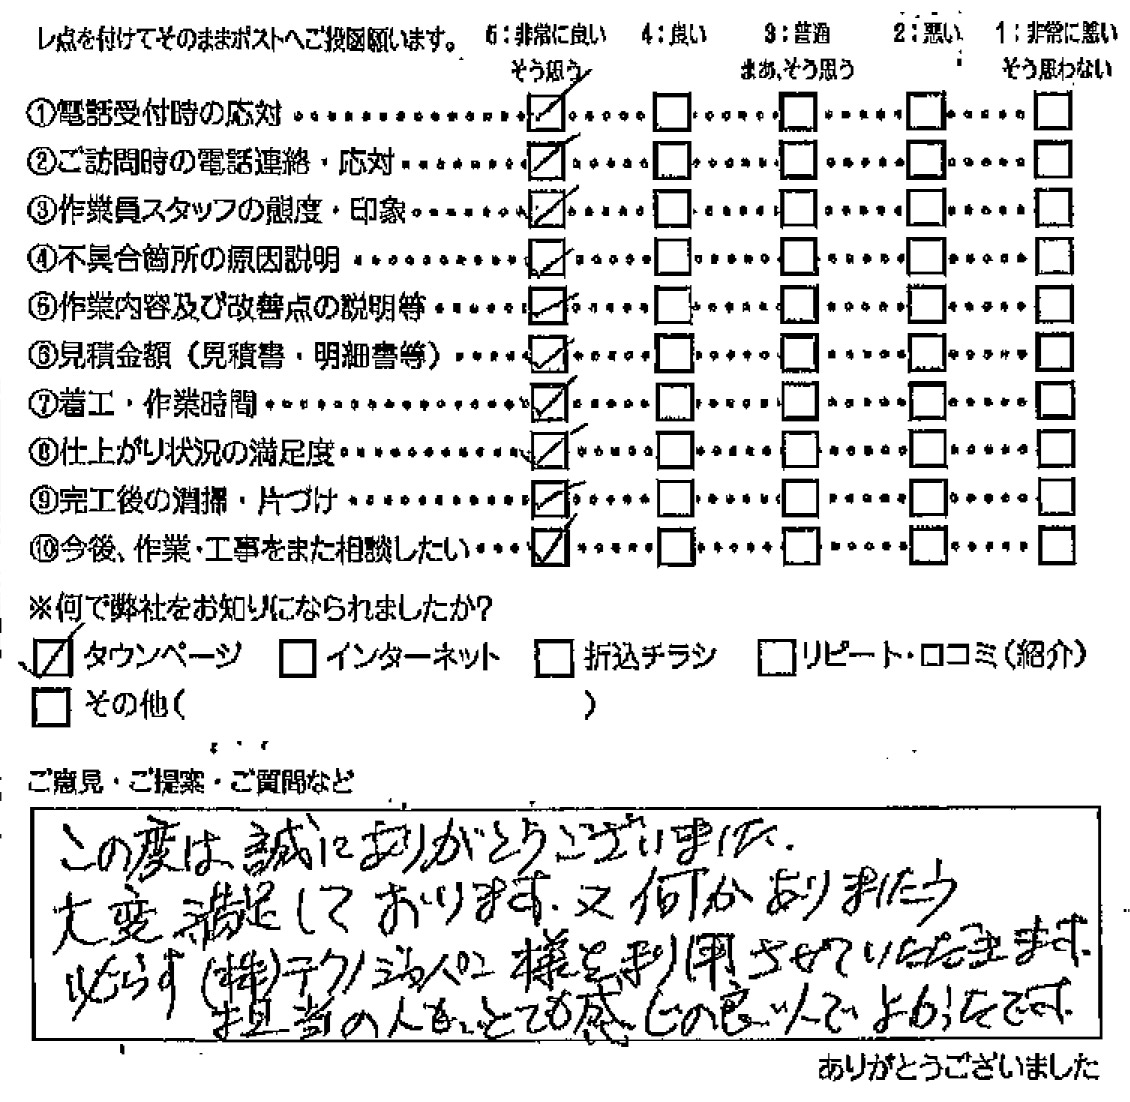 レ点を付けてそのままポストへご投函願います。 5:非常に良い 4:良い 3:普通 2:悪い 1:非常に悪い
そう思う まあ、そう思う そう思わない
①電話受付時の応対
②ご訪問時の電話連絡・応対
③作業員スタッフの態度・印象
④不具合箇所の原因説明
⑤作業内容及び改善点の説明等
⑥見積金額(見積書・明細書等)
⑦着工・作業時間
⑧仕上がり状況の満足度
⑨完工後の清掃・片づけ
⑩今後、作業・工事をまた相談したい
※何で弊社をお知りになられましたか?
タウンページ インターネット 折込チラシ リピート・口コミ(紹介)
その他( )
ご意見・ご提案・ご質問など
この度は、誠にありがとうございました.
大変満足しております. 又何かありましたら
必らず(株)テクノジャパン様を利用させていただきます.
担当の人も、とても感じの良い人でよかったです.
ありがとうございました